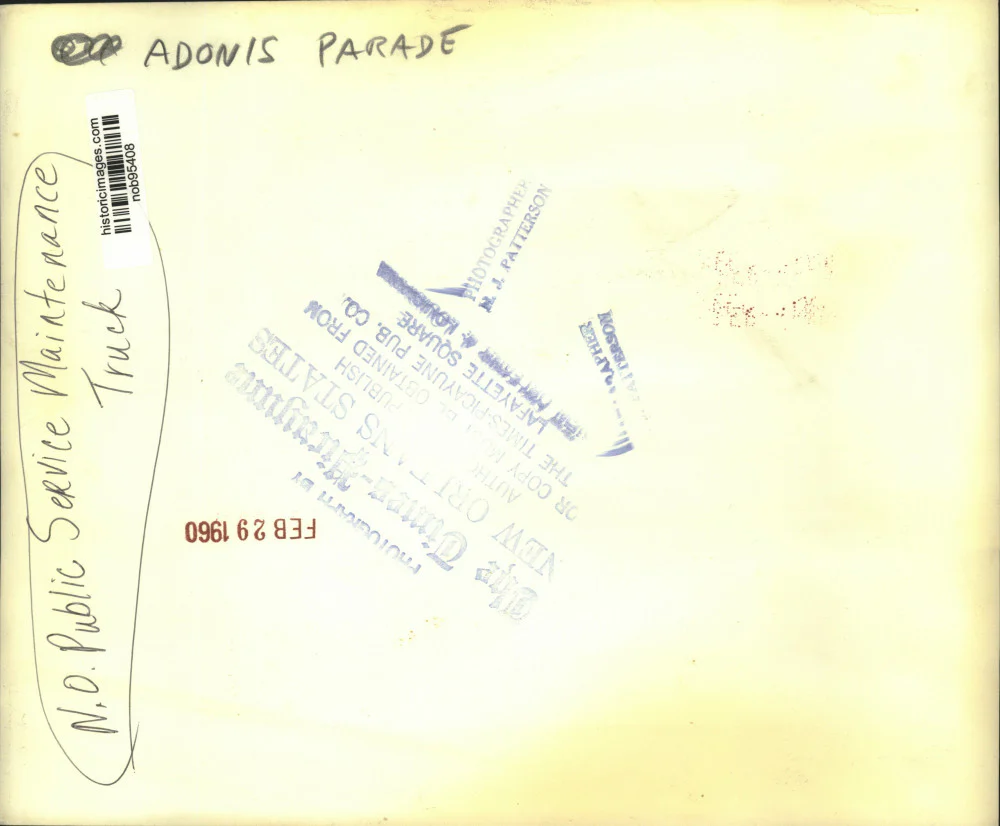 ADONIS PARADE
historicimages.com
nob95408
N.O. Public Service Maintenance
Truck
PHOTOGRAPHER
M. J. PATTERSON
FEB 29 1960
PHOTOGRAPH BY
The Times-Picayune
NEW ORLEANS STATES
PUBLISH
OR COPY
OBTAINED FROM
THE TIMES-PICAYUNE PUB. CO.
LAFAYETTE SQUARE